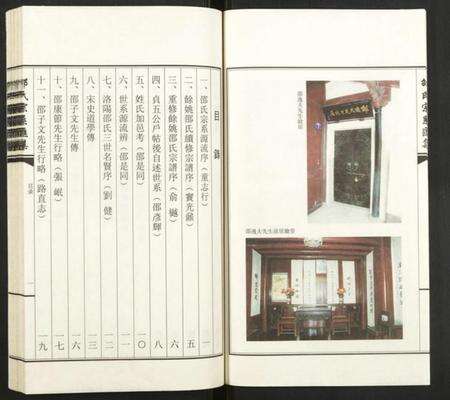 邵逸夫先生故居
邵逸夫先生故居廳堂
目錄
一、邵氏宗系源流序（童志行） 一
二、餘姚邵氏續修宗譜序（竇光鼐） 五
三、重修餘姚邵氏宗譜序（俞樾） 六
四、貞五公戶帖後自述世系（邵彥輝） 八
五、姓氏加邑考（邵是同） 一〇
六、世系源流辨（邵是同） 一一
七、洛陽邵氏三世名賢序（劉健） 一二
八、宋史道學傳 一三
九、邵子文先生傳 一六
十、邵康節先生行略（張㟭） 一七
十一、邵子文先生行略（路直志） 一九
目錄
一